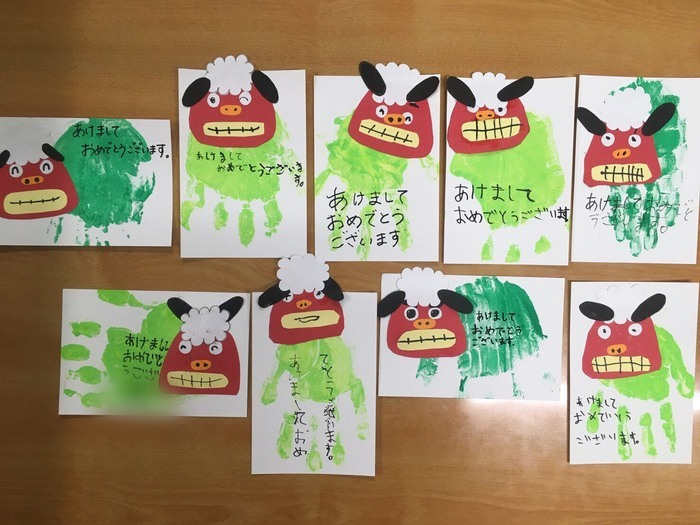 あけまして
おめでとうございます。
あけまして
おめでとうございま
す。
あけまして
おめでとう
ございます
あけまして
おめでとうございます
あけましておめでと
うございます。
あけまし
おめでと
うござい
てとうございます。
あけましておめ
あけまして
おめでとう
ございます。
あけまして
おめでとう
ございます。